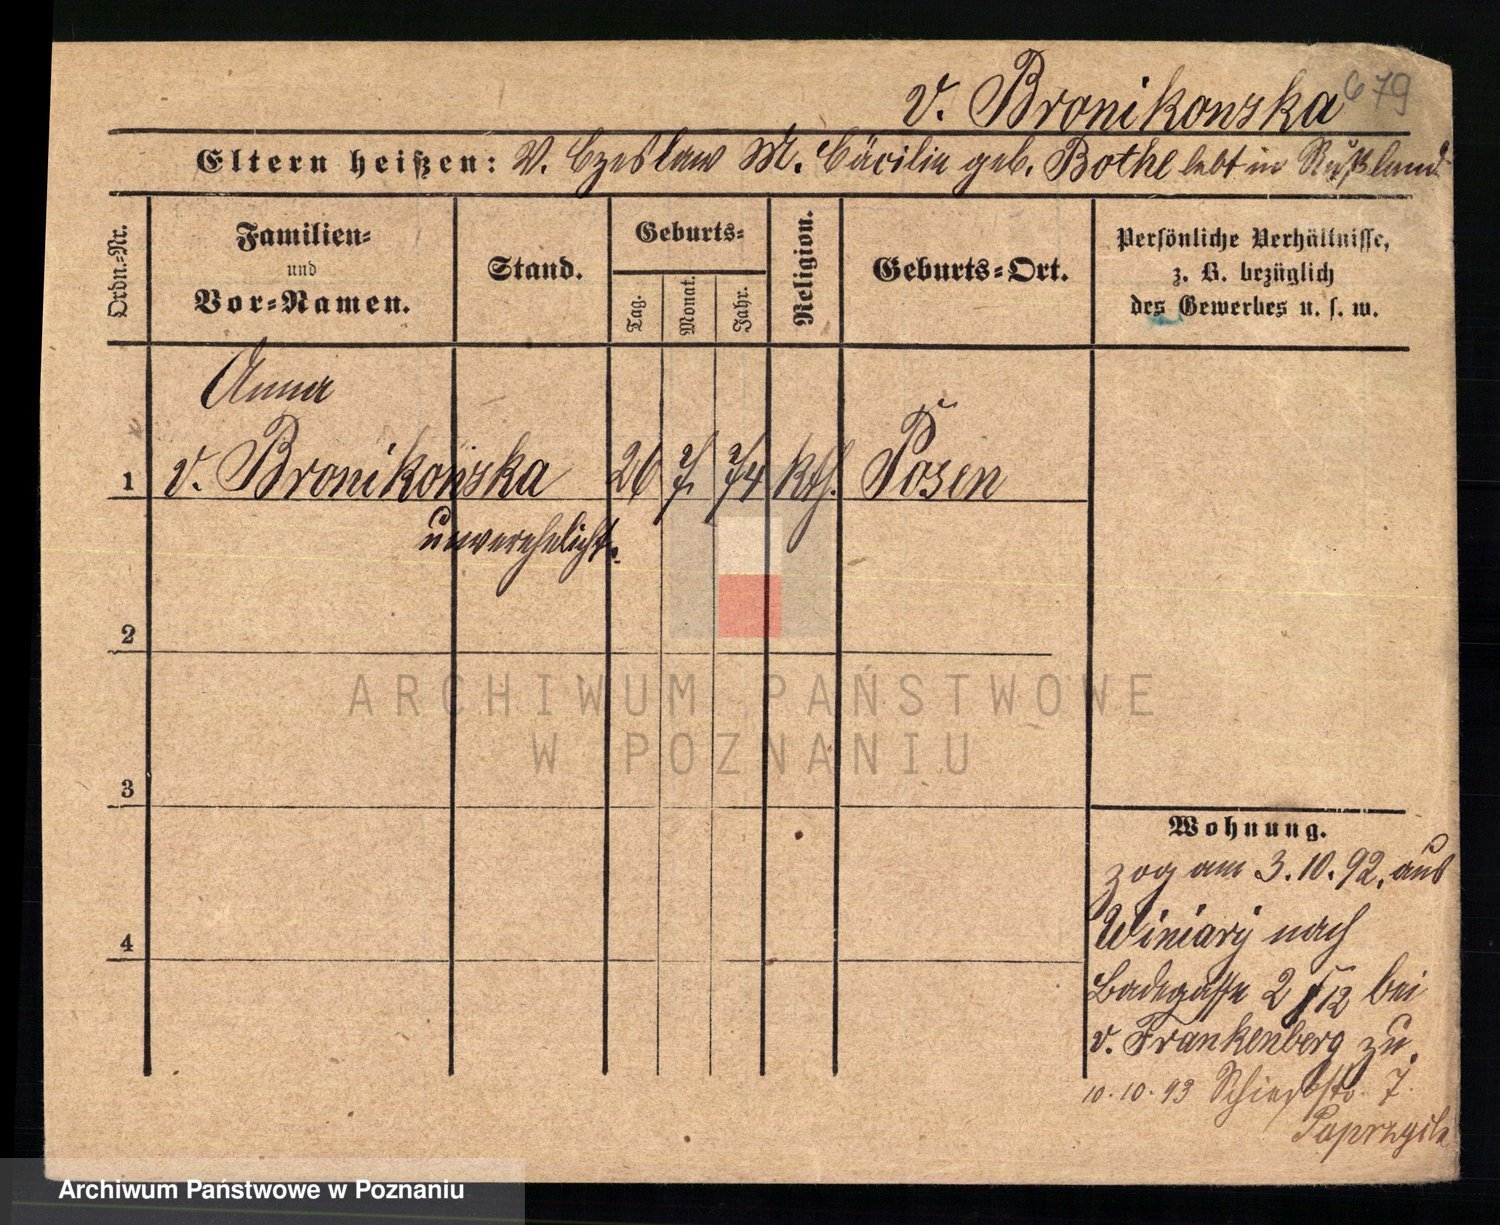 v. Bronikowska 679
Eltern heißen: V. Czeslaw M. Cäcilie geb. Bothe lebt in Rußland
Ordn.-Nr.
Familien-
und
Vor-Namen.
Stand.
Geburts-
Tag.
Monat.
Jahr.
Religion.
Geburts-Ort.
Persönliche Verhältnisse,
z. B. bezüglich
des Gewerbes u. s. w.
Anna
1 v. Bronikowska 26 7. 74 kth. Posen
unverehelicht.
2
3
4
Wohnung.
zog am 3.10.92. aus
Winiary nach
Badegasse 2 12 bei
v. Frankenberg zu.
10.10.93 7.
ARCHIWUM PAŃSTWOWE
W POZNANIU
Archiwum Państwowe w Poznaniu